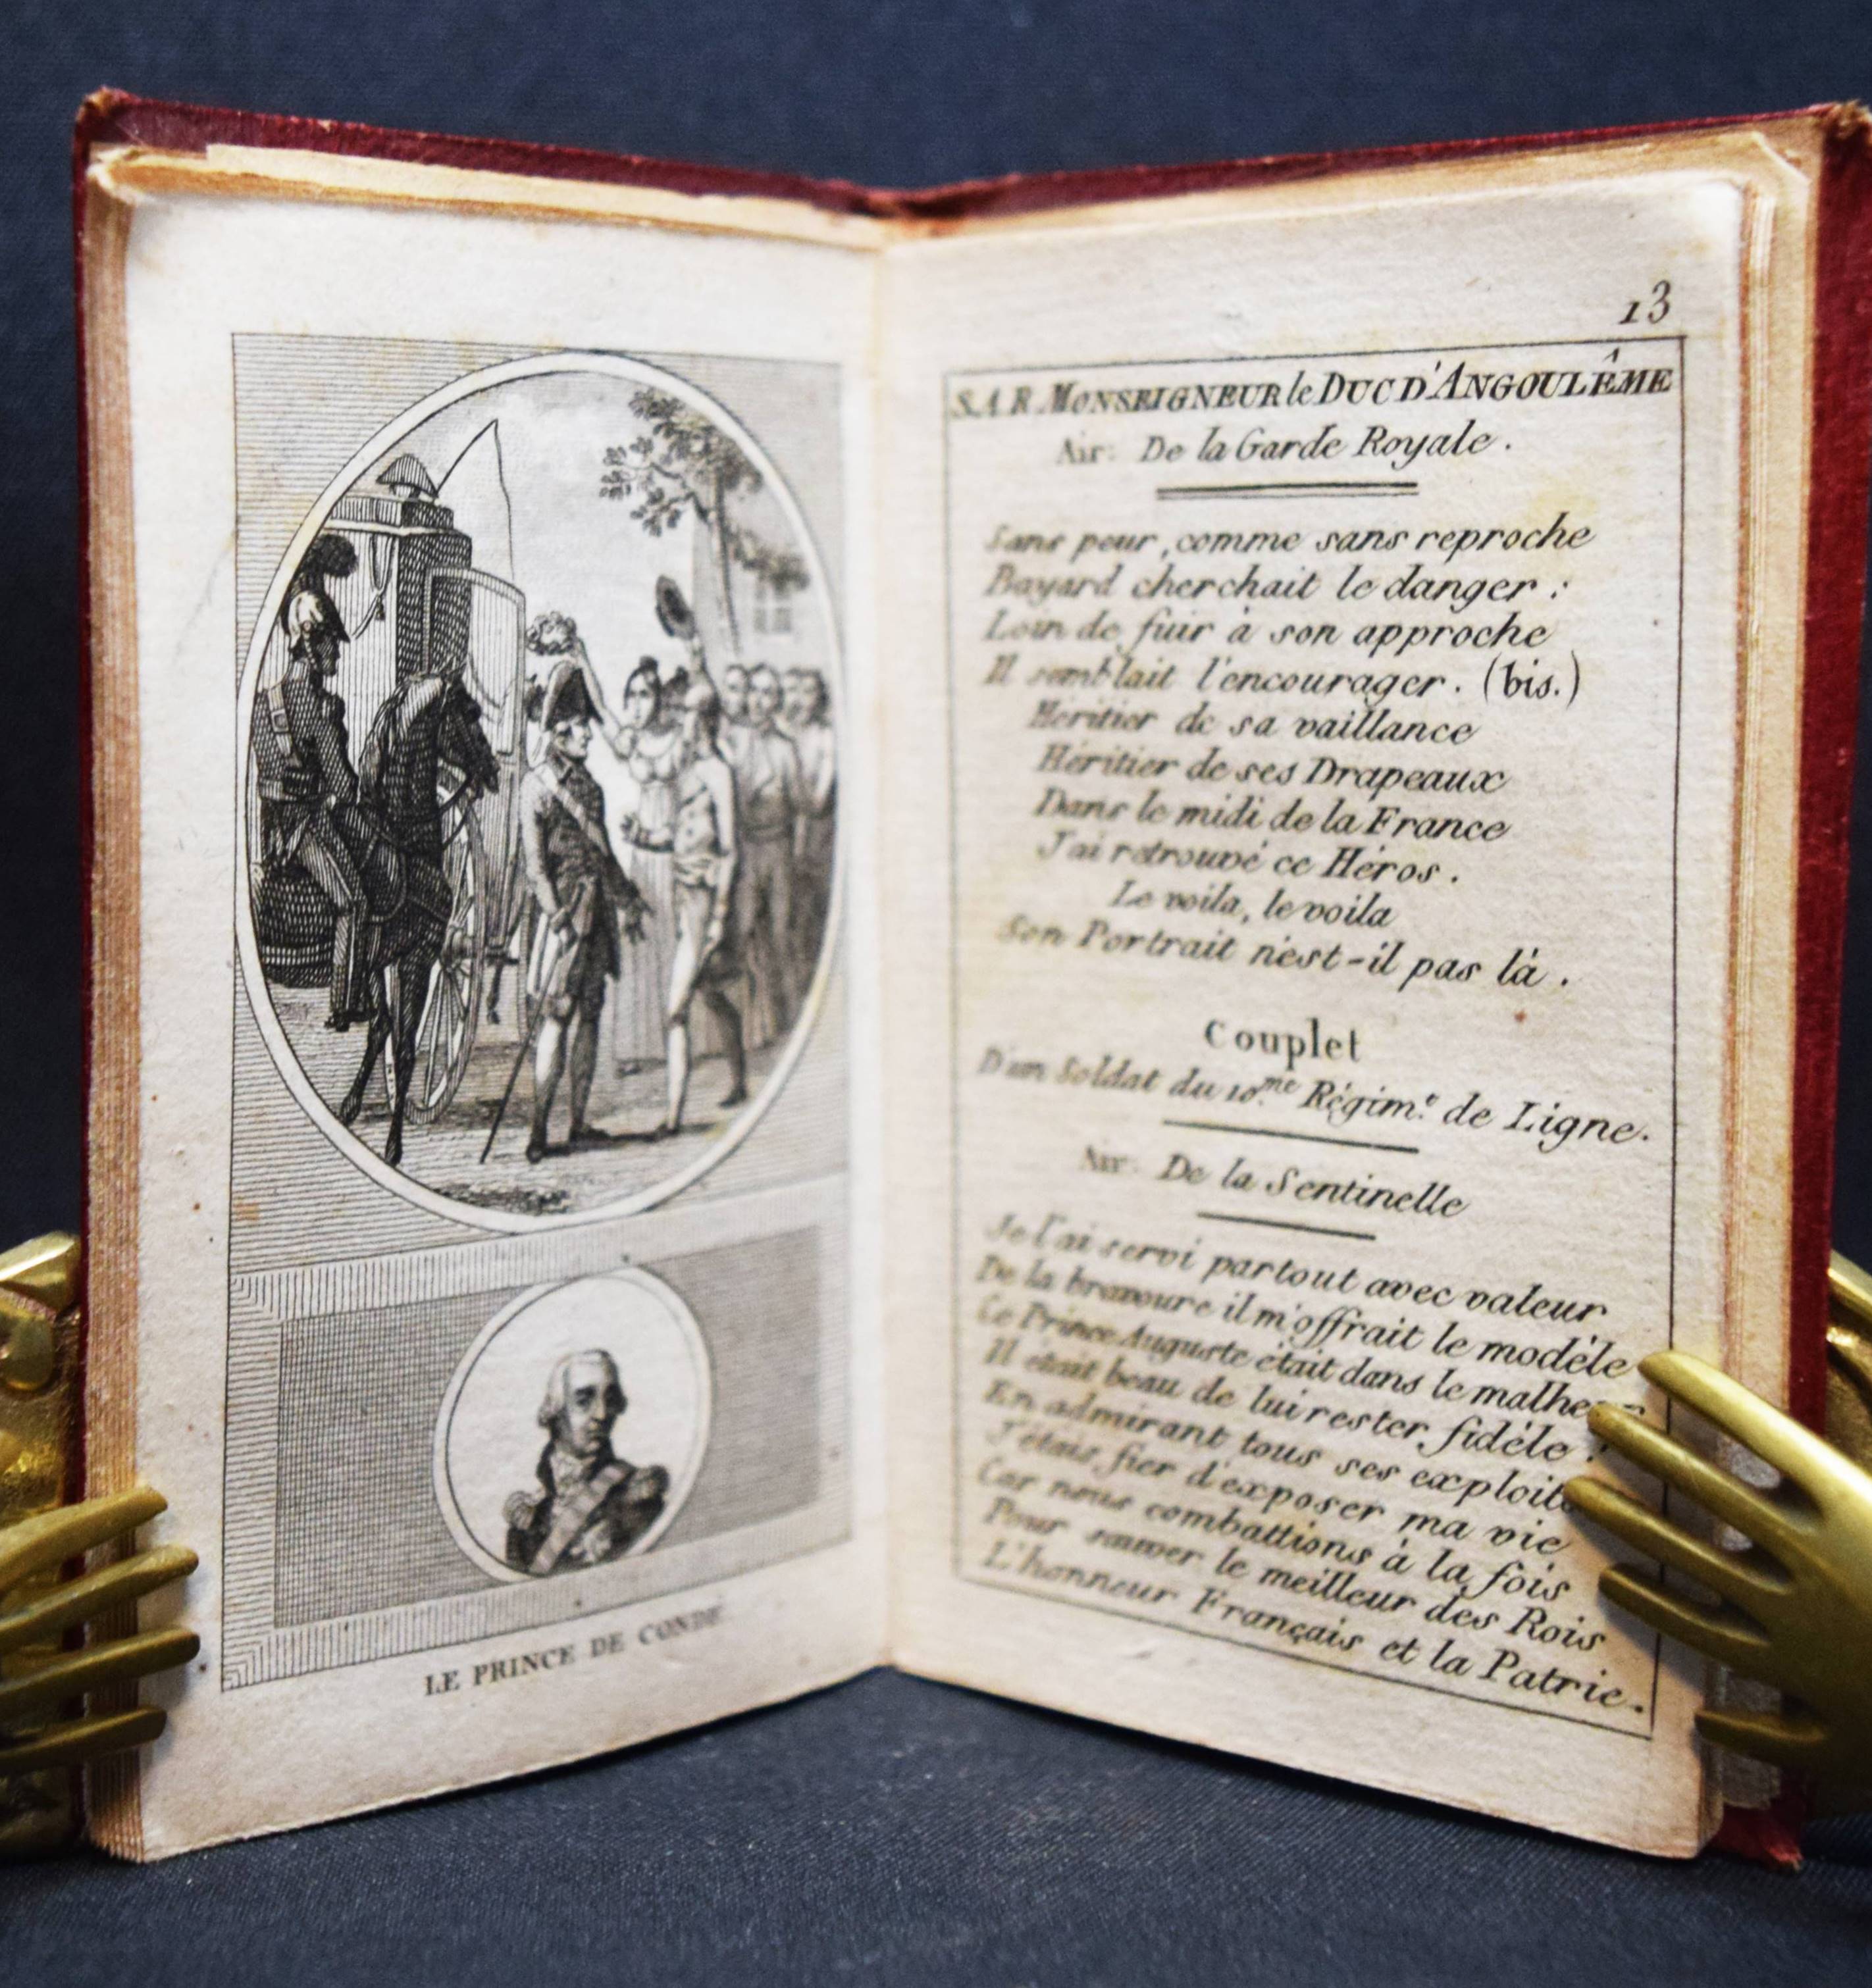 LE PRINCE DE CONDÉ
13
S.A.R. MONSEIGNEUR le DUC D'ANGOULÊME
Air: De la Garde Royale.
Sans peur, comme sans reproche
Bayard cherchait le danger :
Loin de fuir à son approche
Il semblait l'encourager. (bis.)
Héritier de sa vaillance
Héritier de ses Drapeaux
Dans le midi de la France
J'ai retrouvé ce Héros.
Le voila, le voila
Son Portrait n'est-il pas là.
Couplet
D'un Soldat du 10.me Régim.e de Ligne.
Air: De la Sentinelle
Je l'ai servi partout avec valeur
De la bravoure il m'offrait le modèle
Ce Prince Auguste était dans le malheur
Il était beau de lui rester fidèle :
En admirant tous ses exploits
J'étais fier d'exposer ma vie
Car nous combattions à la fois
Pour sauver le meilleur des Rois
L'honneur Français et la Patrie.